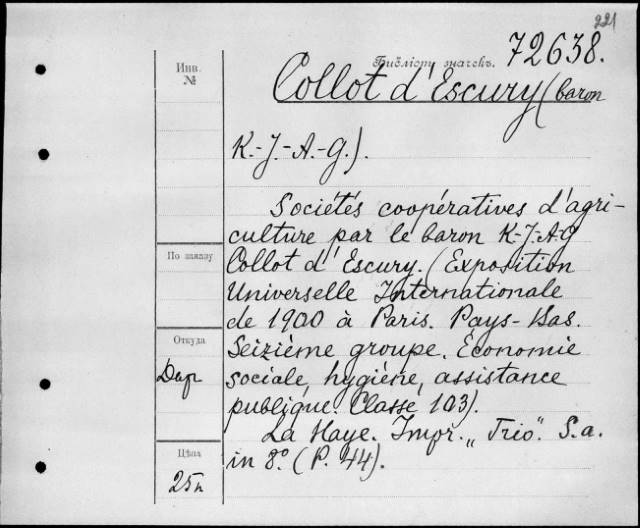 221
Бібліогр. значекъ. 72638.
Инв.
№
Collot d'Escury (baron
K.-J.-A.-G.).
Sociétés coopératives d'agri-
culture par le baron K-J-A-G
По заказу
Collot d'Escury. (Exposition
Universelle Internationale
de 1900 à Paris. Pays-Bas.
Откуда
Seizième groupe. Économie
Дар
sociale, hygiène, assistance
publique. Classe 103).
La Haye. Impr. „Trio". S.a.
Цѣна
in 8º. (P. 44).
25к